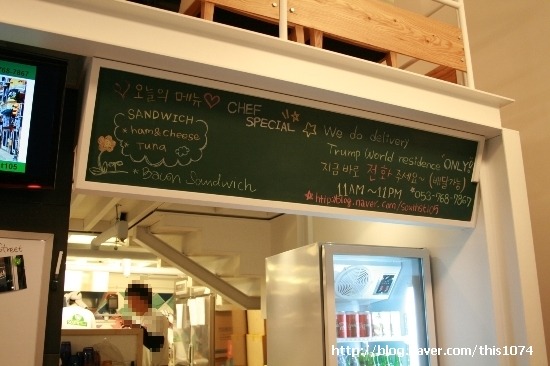 768-7867
오늘의 메뉴
SANDWICH
*ham&cheese
Tuna
*Bacon Sandwich
CHEF
SPECIAL
We do delivery
Trump World residence "ONLY"
지금 바로 전화 주세요~ (배달가능)
11AM~11PM *053-768-7867
Street
http://blog.naver.com/this1074